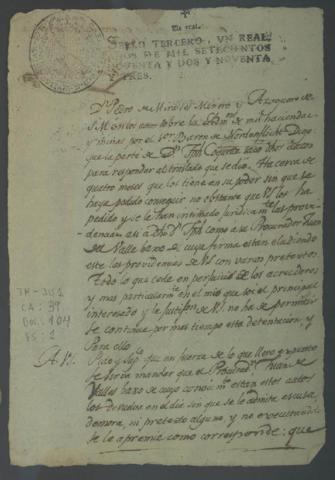 Un real.
SELLO TERCERO, UN REAL,
AÑOS DE MIL SETECIENTOS
NOVENTA Y DOS Y NOVENTA
Y TRES.
Dn Pedro de
sobre la de mi hacienda
y minas por el Sor Baron de Nordenflicht Digo
que la parte de Dn Jph saco los autos
para responder al traslado que se dio. Ha cerca de
quatro meses que los tiene en su poder sin que se
haya podido conseguir no obstante que VS. los ha
pedido y se le han intimado juridicamte las provi-
dencias asi a dho Dn Jph como a su Procurador Juan
del Valle baxo de cuya firma estan eludiendo
este las providencias de VS con varios pretextos
Todo lo que cede en perjuicio de los acreedores
y mas particularte en el mio que soi el principal
interesado y la justifon de VS. no ha de permitir
se continue por mas tiempo esta detentacion, y
Para ello
A VS. Pido y supco que en fuerza de lo que llevo expuesto
se sirva mandar que el Procurador Juan de
Valles baxo de cuyo estan estos autos
los devuelva en el dia sin que se le admita escusa,
demora, ni pretexto alguno, y no executandolo
se le apremie como corresponde: que
TM-301
CA: 39
DOC: 104
FS: 1